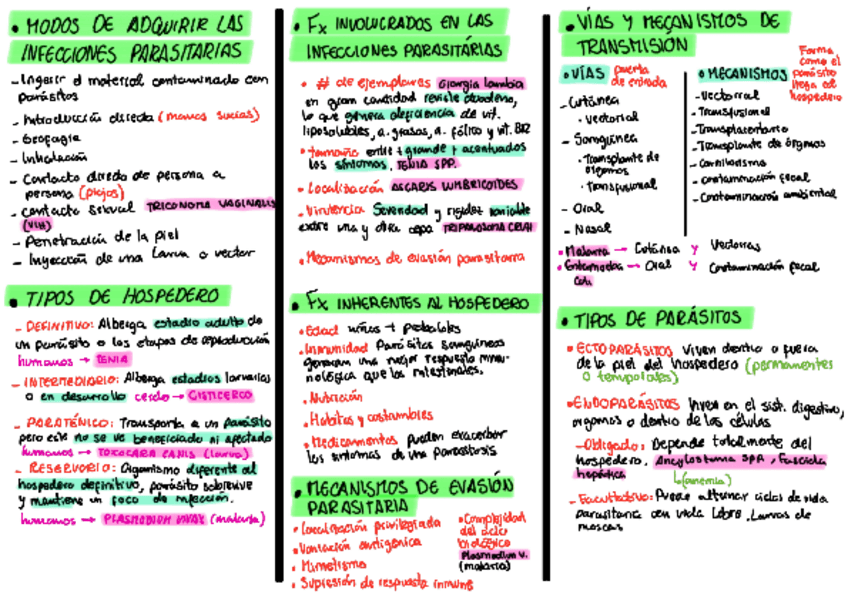 • MODOS DE ADQUIRIR LAS
INFECCIONES PARASITARIAS
- Ingerir el material contaminado con
parásitos
- Introducción directa (manos sucias)
- Geofagia
- Inhalación
- Contacto directo de persona a
persona (piojos)
- contacto sexual TRICONOMA VAGINALIS
(VIH)
- Penetración de la piel
- Inyección de una larva o vector
• TIPOS DE HOSPEDERO
- DEFINITIVO: Alberga estadio adulto de
un parásito o las etapas de reproducción
humanos → TENIA
- INTERMEDIARIO: Alberga estadios larvarios
o en desarrollo cerdo → CISTICERCO
- PARATÉNICO: Transporta a un parásito
pero este no se ve beneficiado ni afectado
humanos → TOXOCARA CANIS (larva)
- RESERVORIO: Organismo diferente al
hospedero definitivo, parásito sobrevive
y mantiene un foco de infección.
humanos → PLASMODIUM VIVAX (malaria)
• Fx INVOLUCRADOS EN LAS
INFECCIONES PARASITÁRIAS
• # de ejemplares Giargia lamblia
en gran cantidad reviste duodeno,
lo que genera deficiencia de vit.
liposolubles, a. grasos, a. fólico y vit. B12
• tamaño entre + grande + acentuados
los síntomas, TENIA SPP.
• Localización ASCARIS LUMBRICOIDES
• Virulencia Severidad y rigidez variable
entre una y otra cepa TRIPANOSOMA CRUZI
• Mecanismos de evasión parasitaria
• Fx INHERENTES AL HOSPEDERO
• Edad niños → probables
• Inmunidad Parásitos sanguíneos
generan una mejor respuesta inmu-
nológica que los intestinales.
• Nutrición
• Hábitos y costumbres
• Medicamentos pueden exacerbar
los síntomas de una parasitosis
• MECANISMOS DE EVASIÓN
PARASITARIA
• Localización privilegiada
• Variación antigénica
• Mimetismo
• Supresión de respuesta inmune
• Complejidad
del ciclo
biológico
Plasmodium v.
(malaria)
• VÍAS Y MECANISMOS DE
TRANSMISIÓN
• VÍAS puerta
de entrada
- Cutánea
• Vectorial
- Sanguínea
• Transplante de
órganos
• Transfusional
- Oral
- Nasal
• MECANISMOS
Forma
como el
parásito
llega al
hospedero
- Vectorial
- Transfusional
- Transplacentario
- Transplante de órganos
- Carnivorismo
- contaminación fecal
- Contaminación ambiental
• Malaria → Cutánea y Vectorias
• Entamoeba → Oral y Contaminación fecal
Coli
• TIPOS DE PARÁSITOS
• ECTOPARÁSITOS Viven dentro o fuera
de la piel del hospedero (permanentes
o temporales)
• ENDOPARÁSITOS Viven en el sist. digestivo,
organos o dentro de las células
- Obligado: Depende totalmente del
hospedero. Ancylostoma spp, Fasciola
hepática
(anemia)
- Facultativo: Puede alternar ciclos de vida
parasitaria con vida libre. Larvas de
moscas